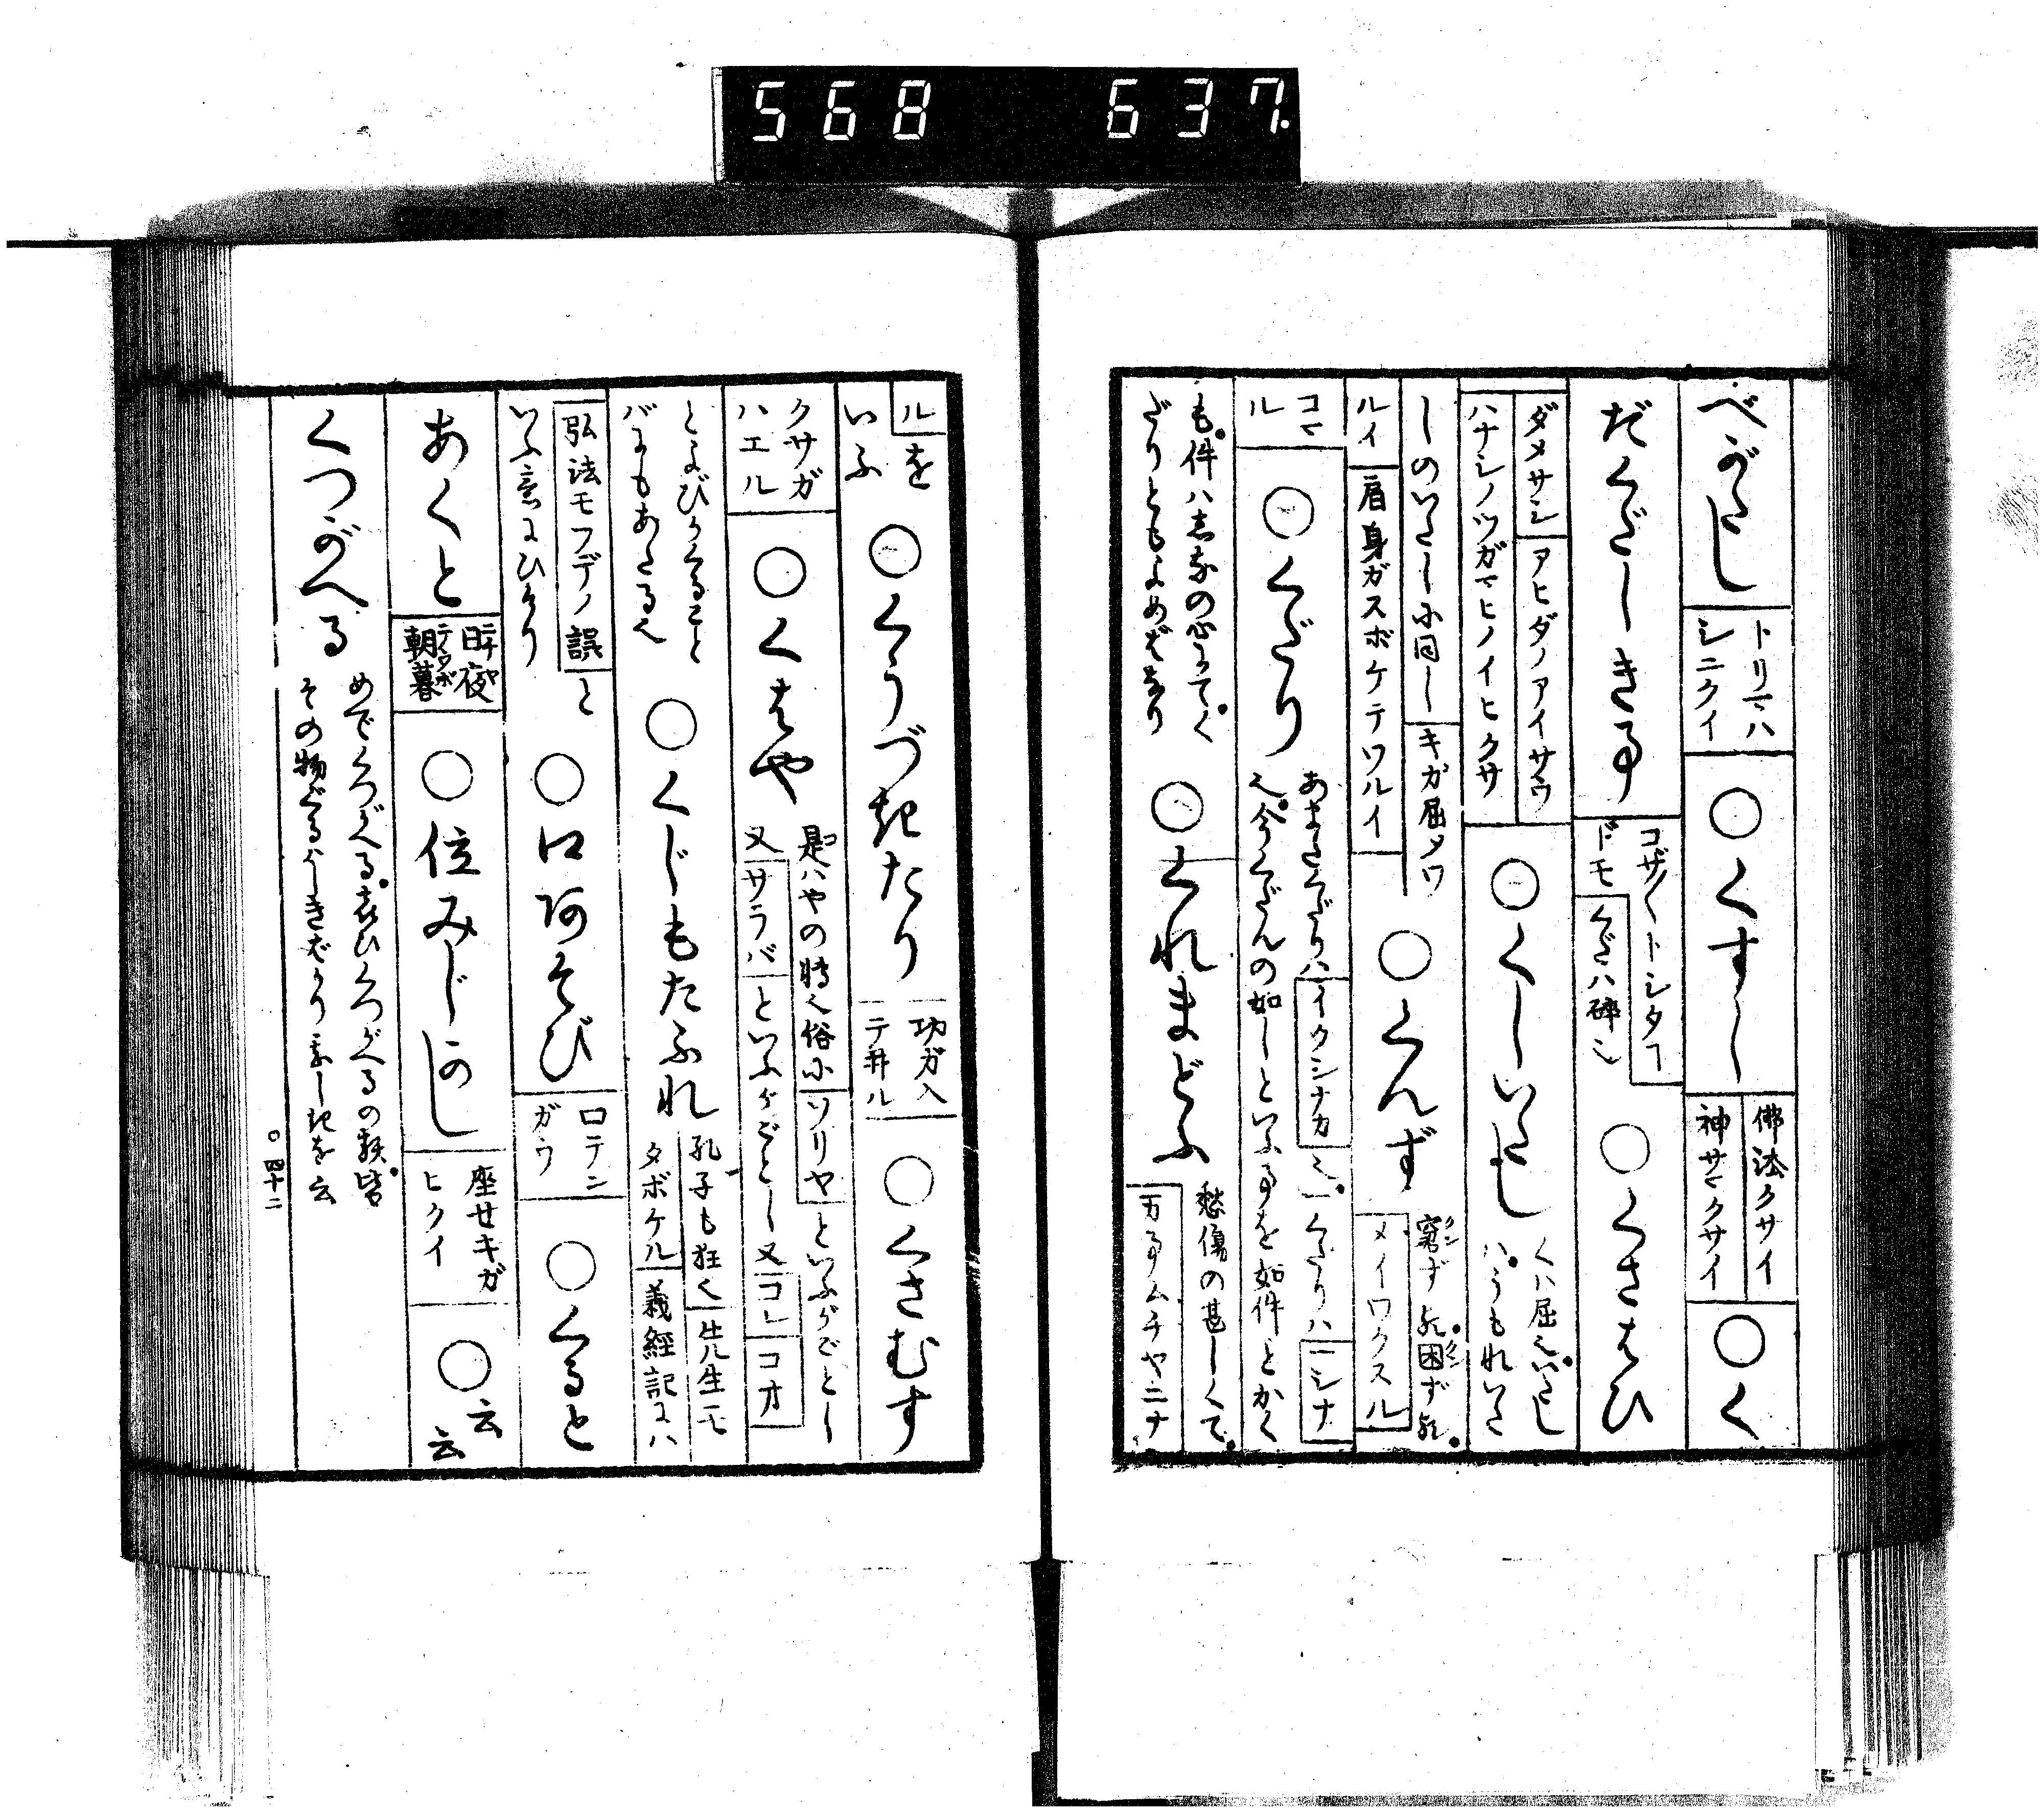 568 637.
べがたし
トリマハ
シニクイ
○くすし
佛法クサイ
神サマクサイ
○く
だくだしき事
コザ〳〵トシタヿ
ドモ
くだハ碎也
○くさはひ
ダメサシ
アヒダノアイサウ
ハナシノツガマヒノイヒクサ
○くしいたし
くハ屈也いたし
ハうもれいた
しのいたしに同し
キガ屈タワ
ルイ
肩身ガスボケテワルイ
○くんず
窘ず 又困ず又
メイワクスル
コマ
ル
○くだり
あまたくだりハ
イクシナカ
三くだりハ
三シナ
也今くだんの如しといふ事を如件とかく
も件ハ志なの心にてく
だりともよめばなり
○くれまどふ
愁傷の甚しくて
万事ムチヤニナ
ルを
いふ
○くうづきたり
功ガ入
テ井ル
○くさむす
クサガ
ハエル
○くはや
是ハやの時人俗に
ソリヤ
といふがごとし
又
サラバ
といふがごとし又
コレ
コオ
とよびかくること
バにもあたる也
○くじもたふれ
孔子も狂く
先生モ
タボケル
義經記にハ
弘法モフデノ誤
と
いふ意にひけり
○口あそび
口テン
ガウ
○くると
あくと
日夜
朝暮
○位みじかし
座セキガ
ヒクイ
○云
云
くつがへる
めでくつがへる。
その物
を云
○四十二